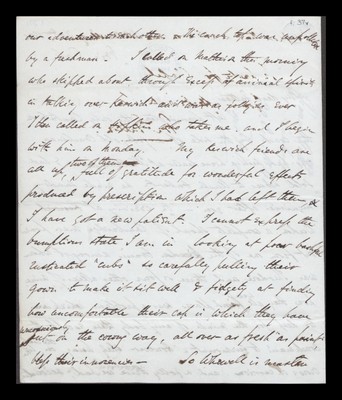 our adventures to each other
by a freshman. I called on Mathison this morning
who skipped about through excess of animal spirits
in talking over Keswick as jollying ever
I then called on who takes me, and I begin
with him on Monday. My Keswick friends are
two of them
all up, full of gratitude for wonderful effects
produced by prescription which I had left them &
I have got a new patient. I cannot express the
bumptious state I am in looking at poor bashful
rusticated "cubs" so carefully pulling their
gown to make it sit well & fidgety at finding
how uncomfortable their cap is which they have
unconsciously
put on the wrong way, all over as fresh as paint,
bless their innocence — So Whewell is master